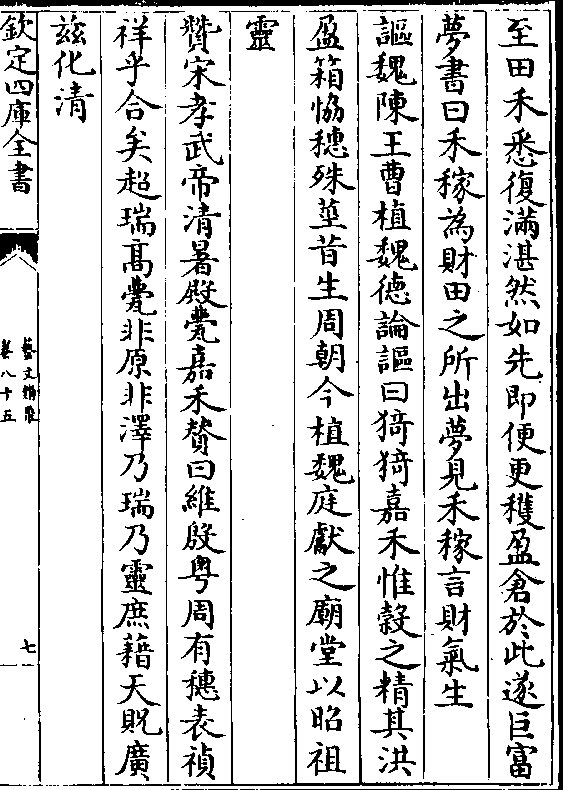 至田禾悉復滿湛然如先即便更穫盈倉於此遂巨富
夢書曰禾稼為財田之所出夢見禾稼言財氣生
謳魏陳王曹植魏德論謳曰猗猗嘉禾惟穀之精其洪
盈箱恊穗殊莖昔生周朝今植魏庭獻之廟堂以昭祖
靈
贊宋孝武帝清暑殿甍嘉禾贊曰維殷粤周有穗表禎
祥乎合矣超瑞髙甍非原非澤乃瑞乃靈庶藉天貺廣
兹化清
欽定四庫全書
藝文類聚
卷八十五
七